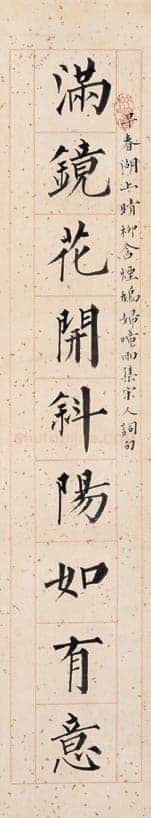 早春湖上晴柳含煙鳩婦啼雨集宋人詞句
滿鏡花開斜陽如有意